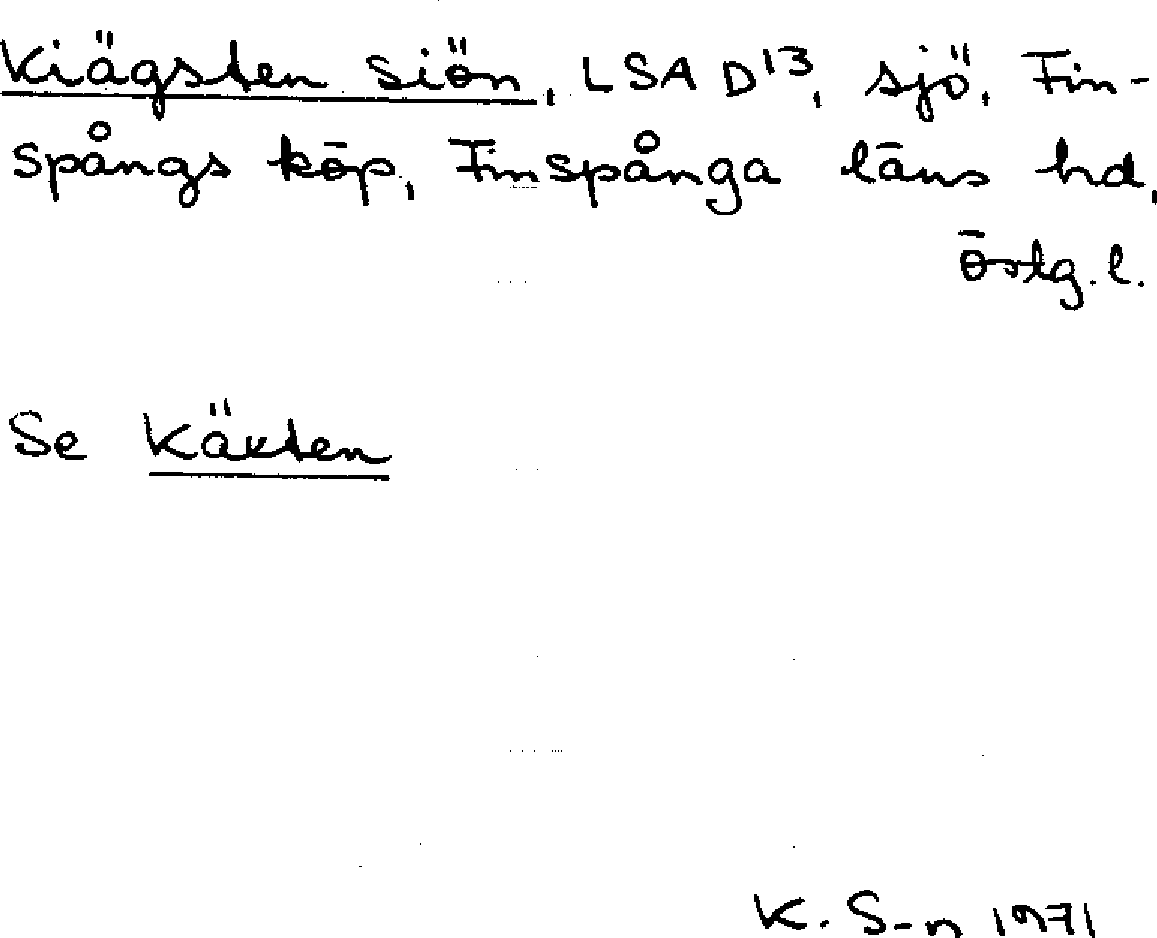 Kiägsten Siön, LSA D13, sjö, Fin-
spångs köp, Finspånga läns hd,
Östg. l.
Se Käxten
K. S-n 1971